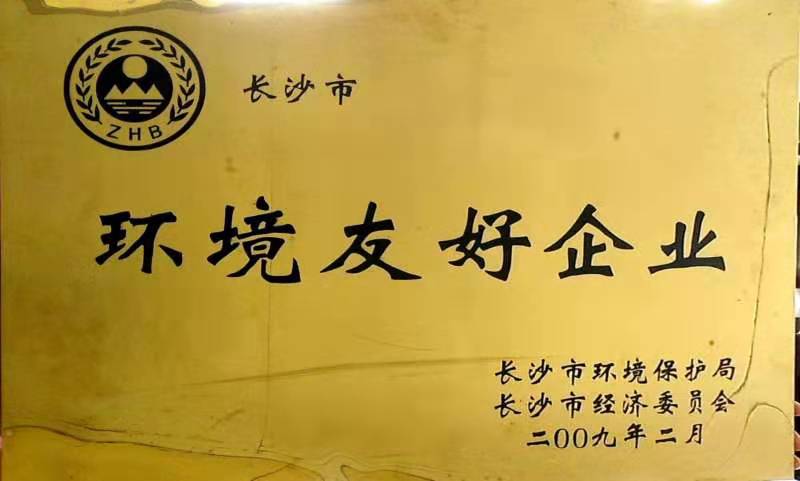 ZHB
长沙市
环境友好企业
长沙市环境保护局
长沙市经济委员会
二00九年二月